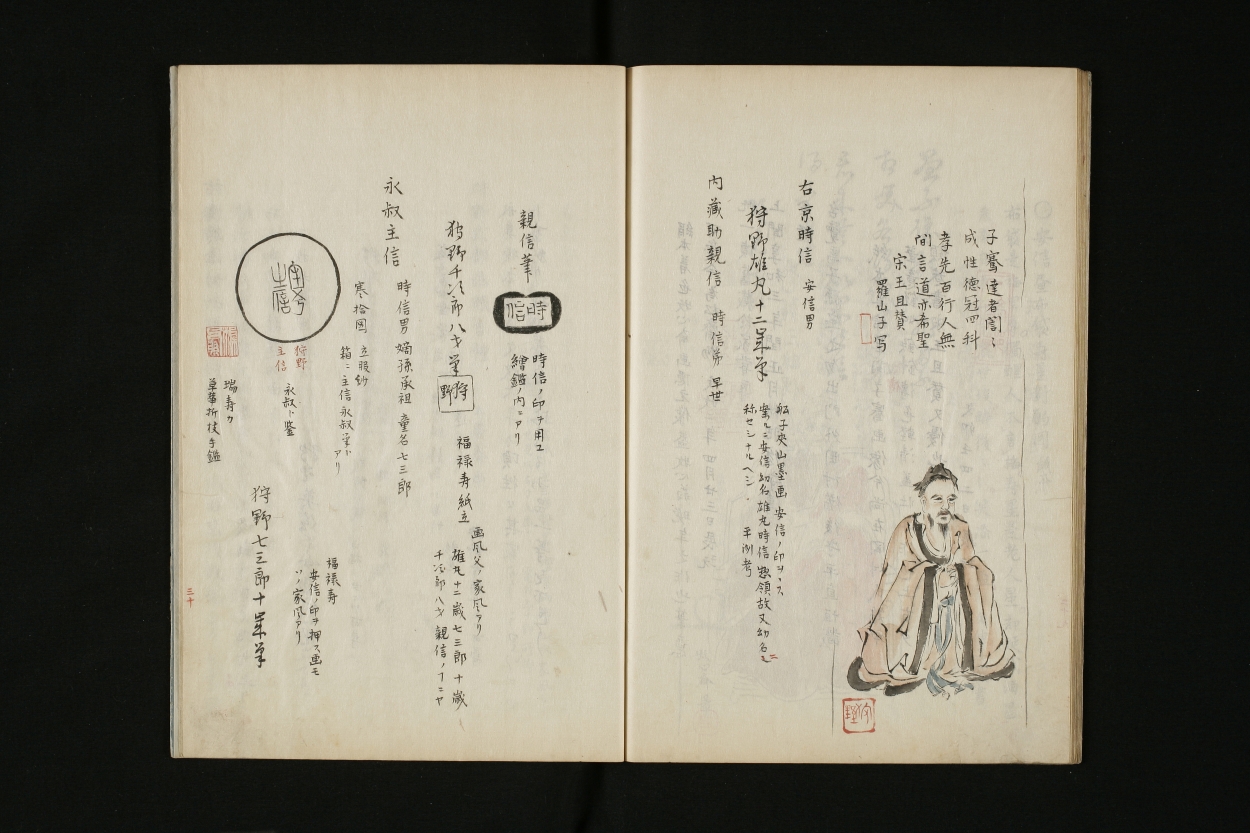 子騫達者誾〻
成性德冠四科
孝先百行人無
間言道亦希聖
宋王旦賛
羅山子写
右京時信 安信男
狩野雄丸十二筆
内藏助親信 時信弟 早世
船子夾山墨画 安信ノ印ヲ
案ルニ安信幼名雄丸時信惣領故又幼名ニ
称セシナルヘシ 平
親信筆
時信
時信ノ印ヲ用ユ
繪鑑ノ内ニアリ
狩野千次郎八才筆
狩野
福禄寿紙立
画風父ノ家風アリ
雄丸十二歳七三郎十歳
千次郎八才親信ノ
永叔主信 時信男 嫡孫承祖 童名七三郎
寒拾圖 立
箱ニ主信永叔筆トアリ
狩野
主信
永叔ト鑒
瑞寿
草華折枝手鑑
福禄寿
安信ノ印ヲ押ス画モ
家風アリ
狩野七三郎十筆
三十